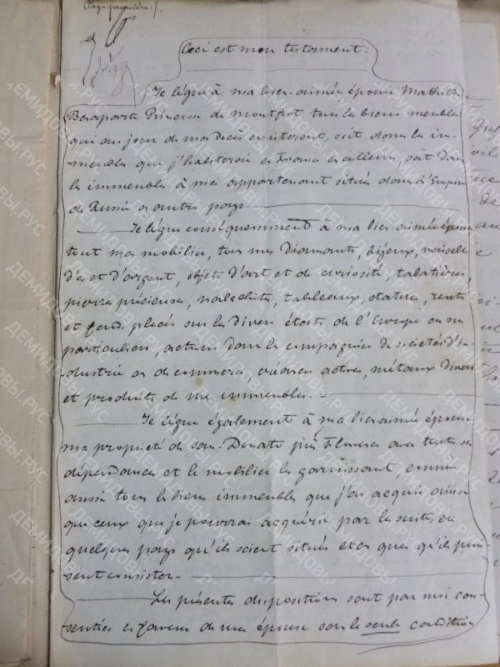 Page première./.
Ceci est mon testament:
Je lègue à ma bien-aimée épouse Mathilde
Bonaparte Princesse de Montfort tous les biens meubles
qui au jour de mon décès existeront, soit dans les im-
meubles que j'habiterai en France ou ailleurs, soit dans
les immeubles à moi appartenant situés dans l'Empire
de Russie ou autres pays.
Je lègue conséquemment à ma bien-aimée épouse
tout mon mobilier, tous mes diamants, bijoux, vaisselle
d'or et d'argent, objets d'art et de curiosité, tabatières,
pierres précieuses, malachite, tableaux, statues, rentes
et fonds placés sur les divers états de l'Europe ou sur
particuliers, actions dans les compagnies de sociétés d'in-
-dustrie ou de commerce, créances actives, métaux divers
et produits de mes immeubles.-
Je lègue également à ma bien-aimée épouse
ma propriété de San-Donato près Florence avec toutes ses
dépendances et le mobilier les garnissant, comme
aussi tous les biens immeubles que j'ai acquis ainsi
que ceux que je pourrai acquérir par la suite, en
quelques pays qu'ils soient situés et en quoi qu'ils puis-
sent consister.-
Les présentes dispositions sont par moi con-
senties en faveur de mon épouse sous la seule condition
ДЕМИДОВЫ.РУС